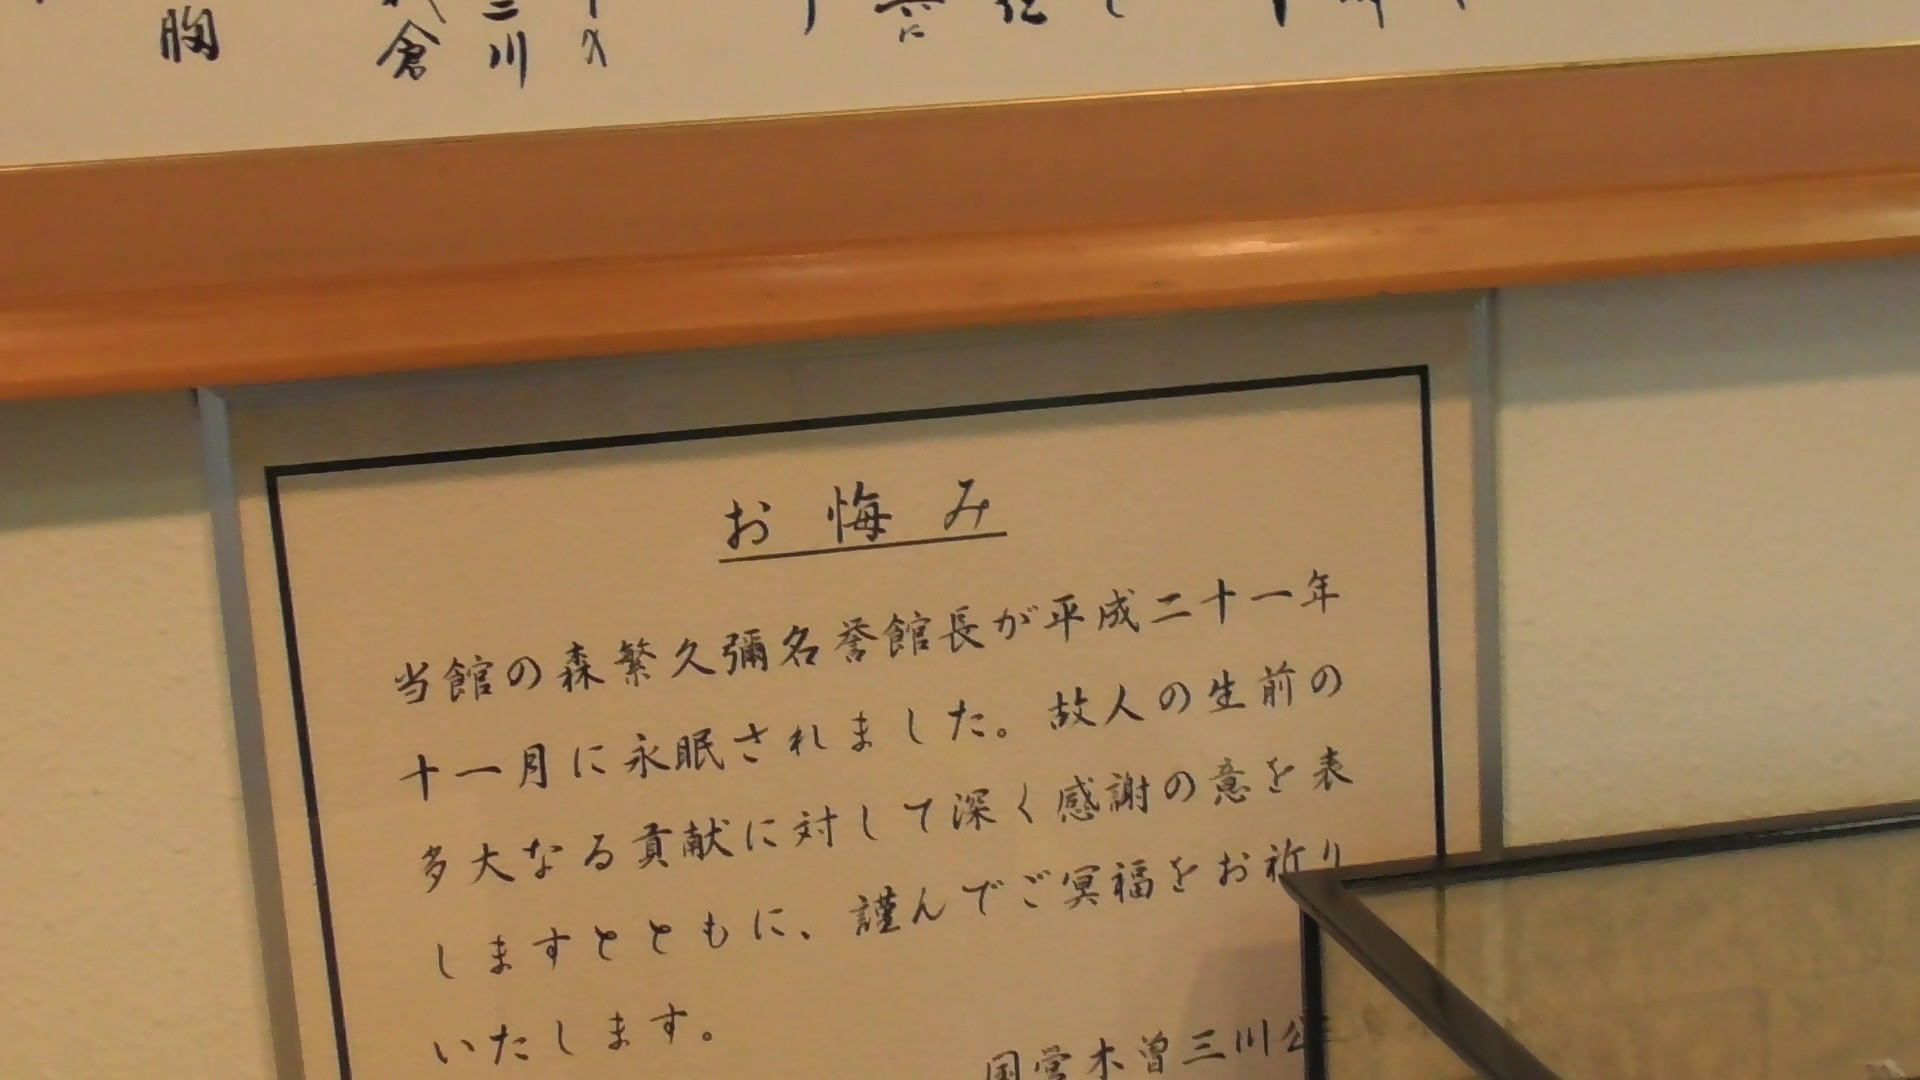 胸
倉
三川
お悔み
当館の森繁久彌名誉館長が平成二十一年
十一月に永眠されました。故人の生前の
多大なる貢献に対して深く感謝の意を表
しますとともに、謹んでご冥福をお祈り
いたします。
国営木曽三川公